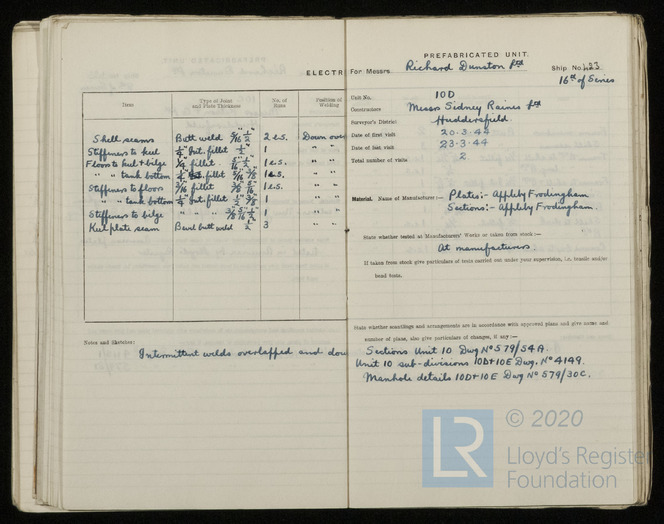 ELECTR
Item
Type of Joint and Plate Thickness
No. of Runs
Position of Welding
Shell seams Butt weld 5/16" 1/2" 2 e.s. Down
Stiffeners to keel 1/4" Int. fillet 1/2" 1 " "
Floors to keel & bilge 1/4" fillet 5/16" 1/2" 1 e.s. " "
" " tank bottom 5/16" 3/8" 1 e.s. " "
Stiffeners to floors 3/16" fillet 3/8" 5/16" 1 e.s. " "
" " tank bottom 1/4" Int. fillet 1/2" 3/8" 1 " "
Stiffeners to bilge " " " 3/8" 5/16" 1/2" 1 " "
Keel plate seam Bevel butt weld 1/2" 3 " "
Notes and Sketches:
Intermittent welds overlapped and
PREFABRICATED UNIT.
For Messrs. Richard Dunston Ltd Ship No.
16th of Series
Unit No. 10D
Constructors Messrs Sidney Raines Ltd
Surveyor's District Huddersfield.
Date of first visit 20.3.44
Date of last visit 23.3.44
Total number of visits 2
Material. Name of Manufacturer:— Plates:- Appleby Frodingham
Sections:- Appleby Frodingham.
State whether tested at Manufacturers' Works or taken from stock:—
At manufacturers
If taken from stock give particulars of tests carried out under your supervision, i.e. tensile and/or
bend tests.
State whether scantlings and arrangements are in accordance with approved plans and give names and
number of plans, also give particulars of changes, if any:—
Sections Unit 10 Dwg No 579/54A.
Unit 10 sub-divisions 10D+10E Dwg. No 4149.
Manhole details 10D+10E Dwg No 579/30C.
© 2020
LR
Lloyd's Register
Foundation